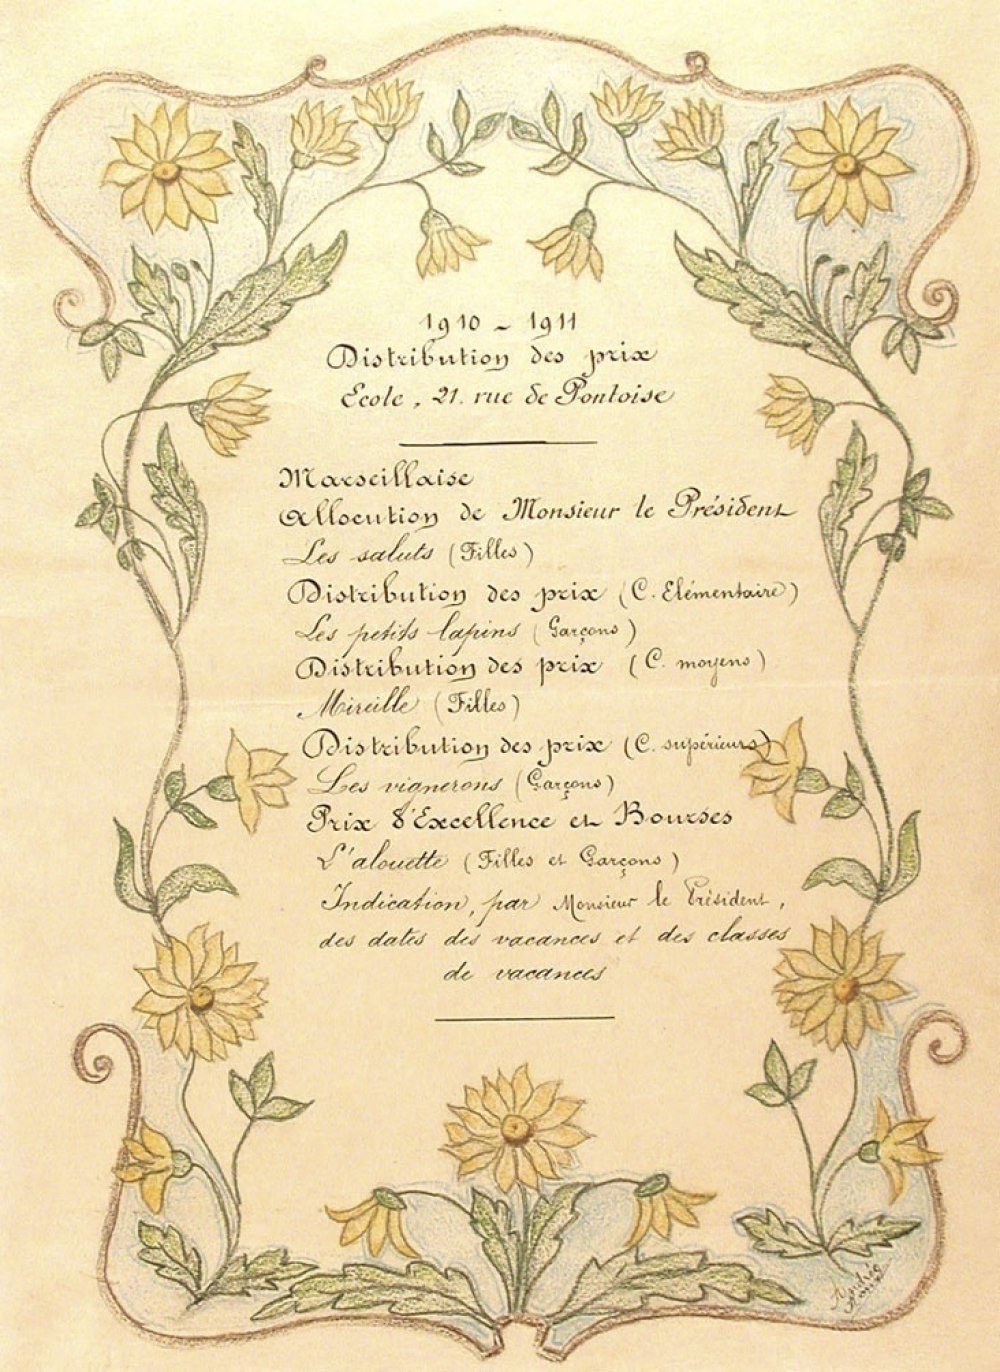 1910 ~ 1911
Distribution des prix
Ecole, 21. rue de Pontoise
Marseillaise
Allocution de Monsieur le Président
Les saluts (Filles)
Distribution des prix (C. Elémentaire)
Les petits lapins (Garçons)
Distribution des prix (C. moyens)
Mireille (Filles)
Distribution des prix (C. supérieurs)
Les vignerons (Garçons)
Prix d'Excellence et Bourses
L'alouette (Filles et Garçons)
Indication, par Monsieur le Président,
des dates des vacances et des classes
de vacances